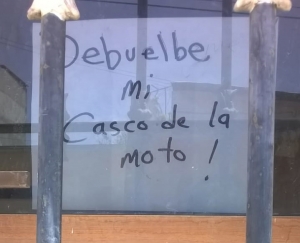 Debuelbe
mi
Casco de la
moto !